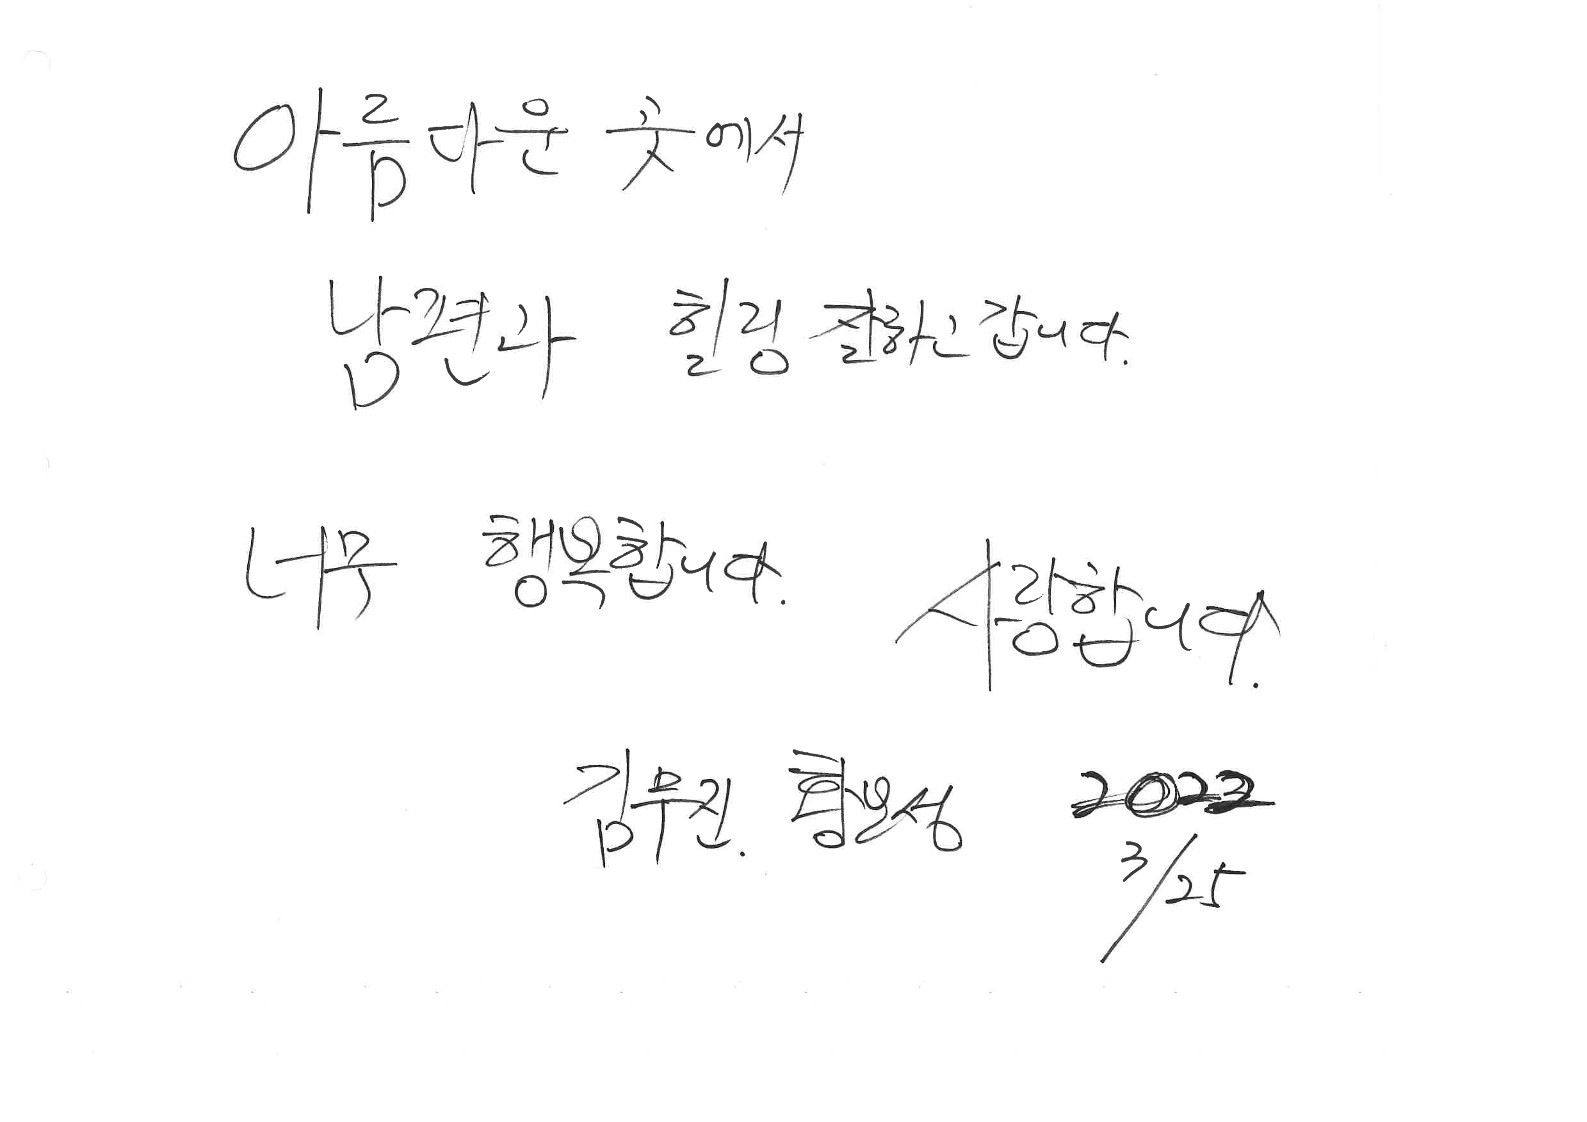 아름다운 곳에서
남편과 힐링 잘하고 갑니다.
너무 행복합니다. 사랑합니다.
김무진. 2022
3/25